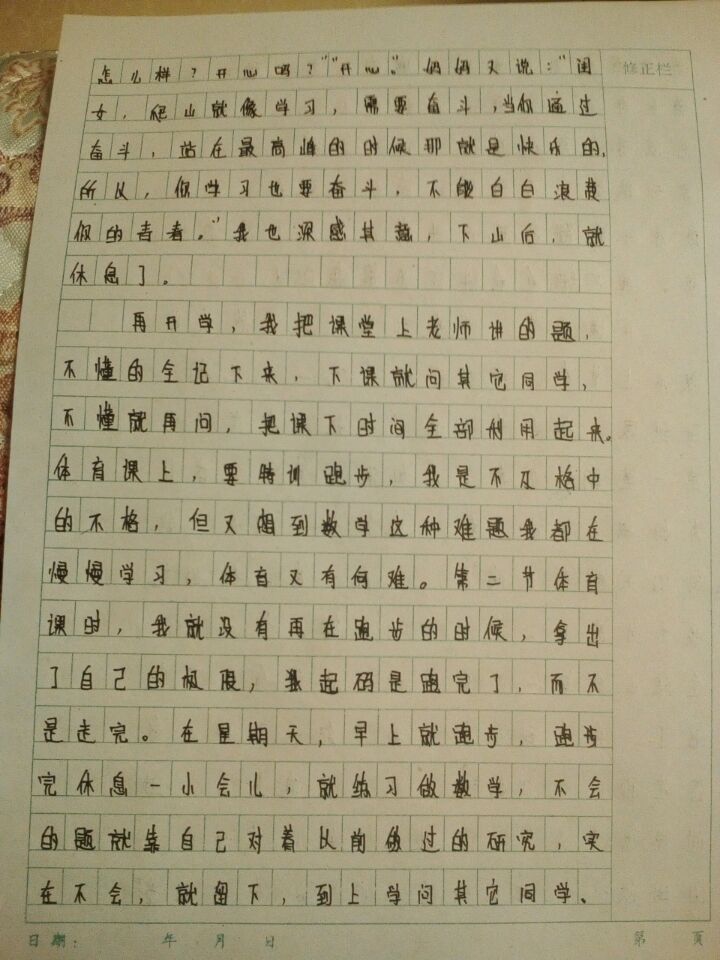 怎么样？开心吗？""开心。"妈妈又说："闺
修正栏
女，爬山就像学习，需要奋斗，当你通过
奋斗，站在最高峰的时候那就是快乐的，
所以，你学习也要奋斗，不能白白浪费
你的青春。"我也深感其蕴，下山后，就
休息了。
再开学，我把课堂上老师讲的题，
不懂的全记下来，下课就问其它同学，
不懂就再问，把课下时间全部利用起来。
体育课上，要特训跑步，我是不及格中
的不格，但又想到数学这种难题我都在
慢慢学习，体育又有何难。第二节体育
课时，我就没有再在跑步的时候，拿出
了自己的极限，我起码是跑完了，而不
是走完。在星期天，早上就跑步，跑步
完休息一小会儿，就练习做数学，不会
的题就靠自己对着以前做过的研究，实
在不会，就留下，到上学问其它同学。
日期： 年 月 日 第 页